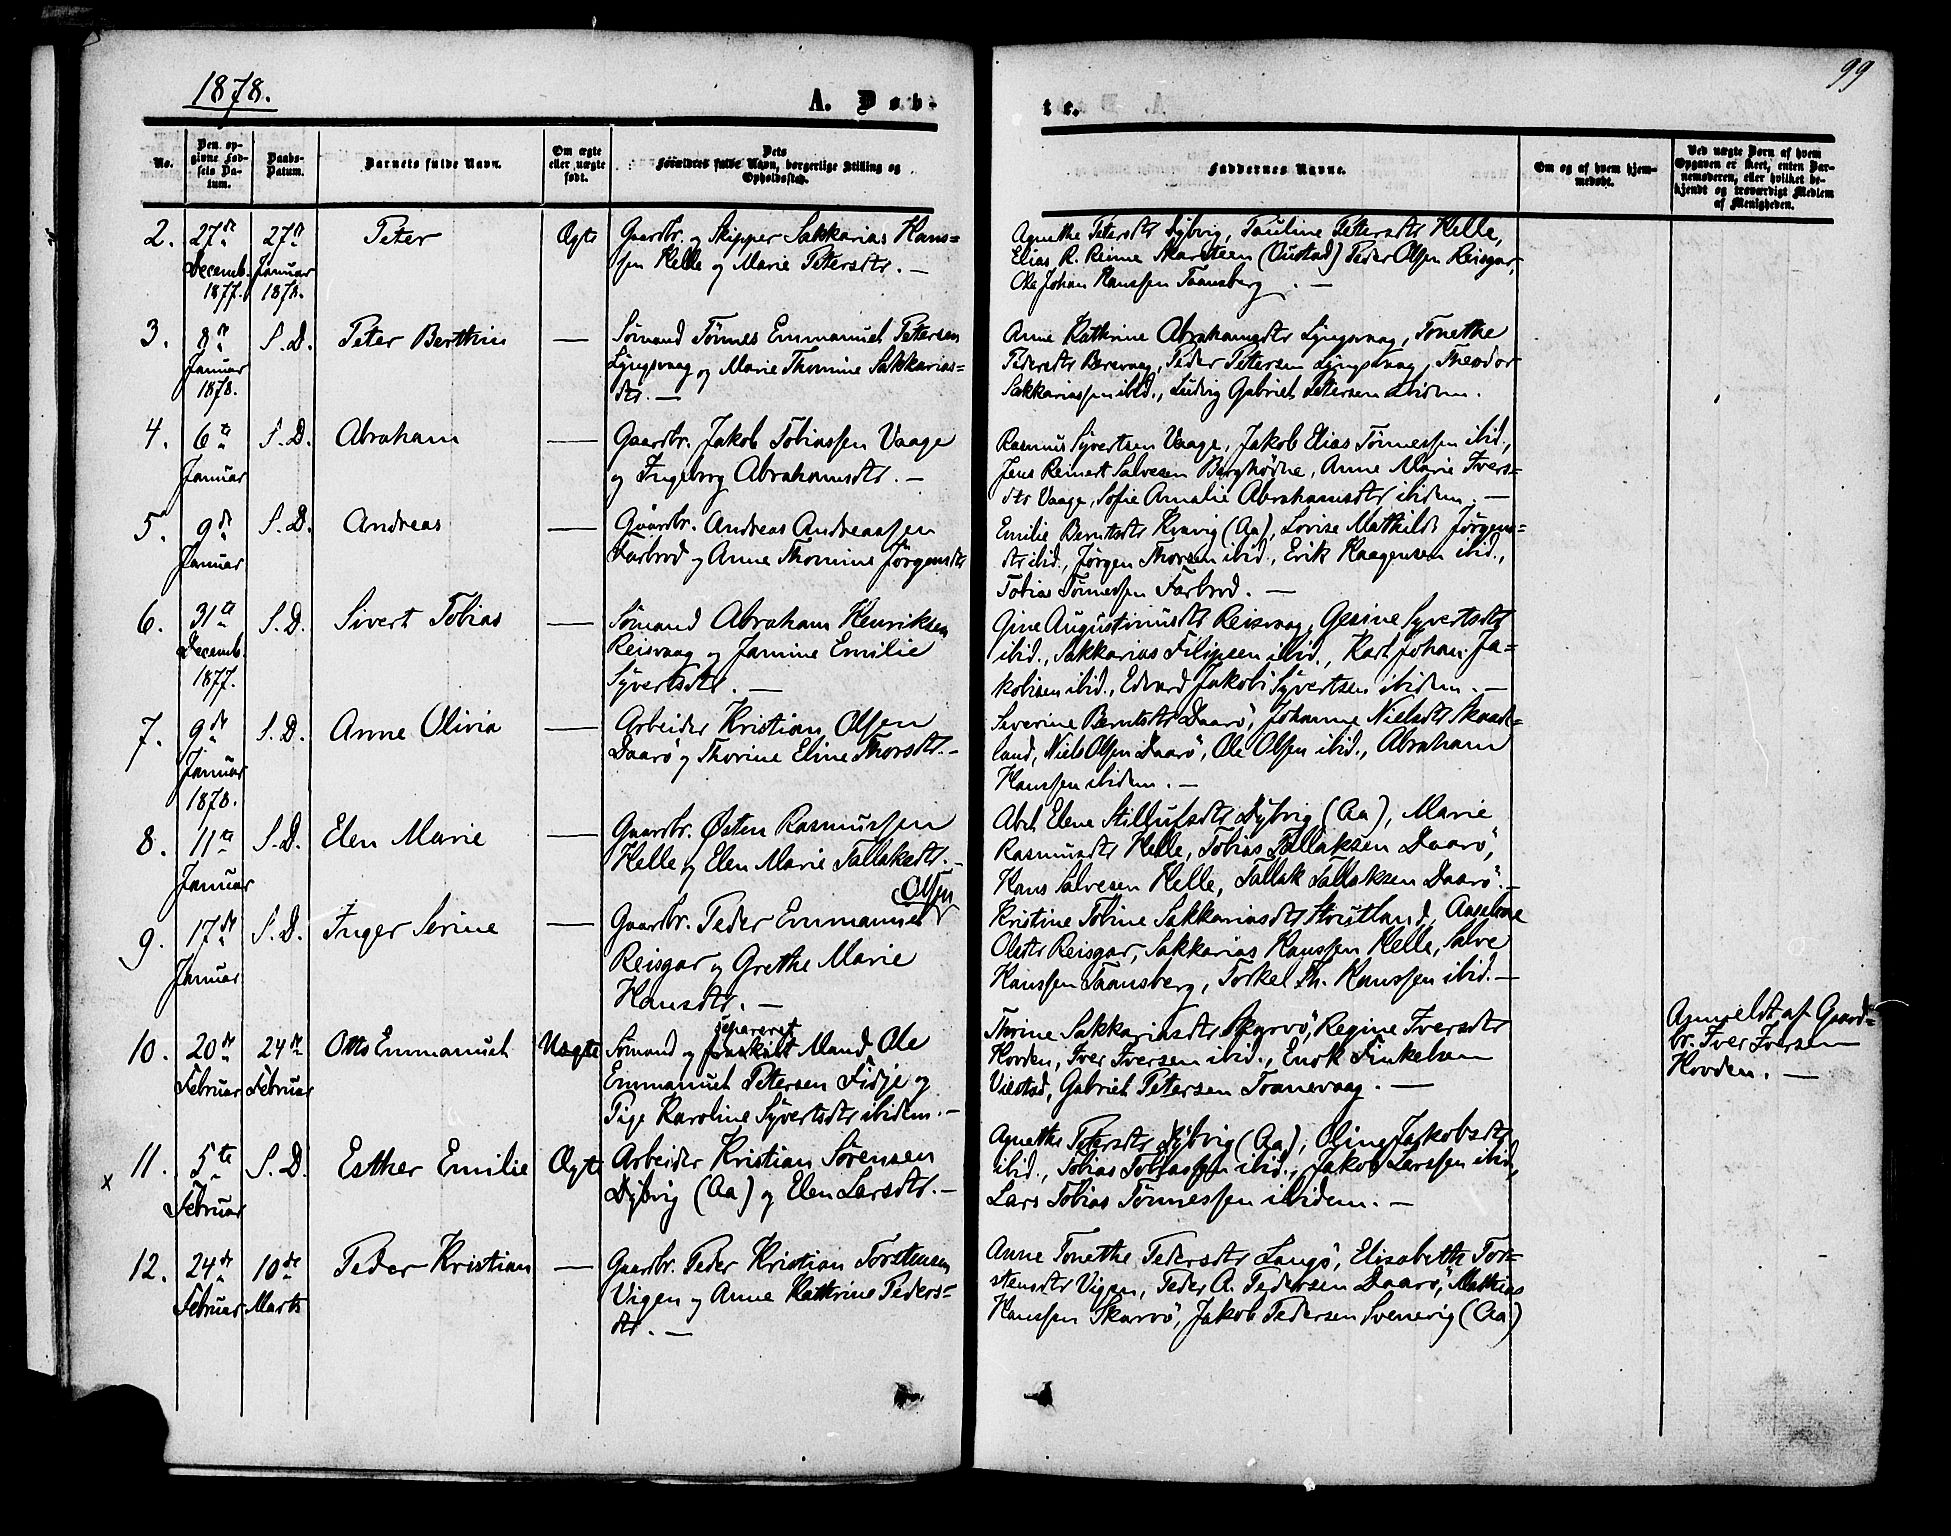 1878.
A. Døb-
te.
99
No.
Den opgivne Fødsels Datum.
Daabs-Datum.
Barnets fulde Navn.
Om ægte eller uægte født.
Dets Forældres fulde Navn, borgerlige Stilling og Opholdssted.
Faddernes Navne.
Om og af hvem hjemmedøbt.
Ved uægte Børn af hvem Opgaven er skeet, enten Barnemoderen, eller hvilket bekjendt og troværdigt Medlem af Menigheden.
2. 27de Decemb. 1877. 27de Januar 1878. Peter Ægte
Gaardbr. og Skipper Sakkarias Hans=
sen Helle og Marie Petersdtr. —
Agnethe Petersdtr Dybvig, Pauline Petersdtr Helle,
Elias R. Reinne Marsteen (Oustad) Peder Olsen Reisgar,
Ole Johan Hanssen Taansberg. —
3. 8de Januar 1878. S.D. Peter Berthin —
Sømand Tønnes Emmanuel Petersen
Lyngsvaag og Marie Thomine Sakkarias=
dtr. —
Anne Kathrine Abrahamsdtr Lyngsvaag, Tonethe
Pedersdtr Berevaag, Peder Petersen Lyngsvaag, Theodor
Sakkariassen ibid., Ludvig Gabriel Petersen ibidem.
4. 6te Januar S.D. Abraham —
Gaardbr. Jakob Tobiassen Vaage
og Ingeborg Abrahamsdtr. —
Rasmus Syvertsen Vaage, Jakob Elias Tønnessen ibid.,
Jens Reinert Salvesen Berghødne, Anne Marie Ivers=
dtr Vaage, Sofie Amalie Abrahamsdtr ibidem. —
5. 9de Januar S.D. Andreas —
Gaardbr. Andreas Andreassen
Farbrod og Anne Thomine Jørgensdtr
Emilie Berntsdtr Kvavig (Aa), Lovise Mathilde Jørgens=
dtr ibid., Jørgen Thorsen ibid., Erik Haagensen ibid.,
Tobias Tønnessen Farbrod. —
6. 31te Decemb. 1877. S.D. Sivert Tobias —
Sømand Abraham Henriksen
Reisvaag og Jamine Emilie
Syvertsdtr. —
Gine Augustinusdtr Reisvaag, Gesine Syvertsdtr
ibid., Sakkarias Filipsen ibid., Karl Johan Ja=
kobsen ibid., Edvard Jakobi Syvertsen ibidem. —
7. 9de Januar 1878. S.D. Anne Olivia —
Arbeider Kristian Olsen
Daarø og Thorine Eline Thorsdtr. —
Severine Berntsdtr Daarø, Johanne Nielsdtr Skaade=
land, Niels Olsen Daarø, Ole Olsen ibid., Abraham
Hanssen ibidem. —
8. 11te Januar S.D. Elen Marie —
Gaardbr. Østen Rasmussen
Helle og Elen Marie Tallaksdtr. —
Abel Elene Stillufsdtr Dybvig (Aa), Marie
Rasmusdtr Helle, Tobias Tallaksen Daarø,
Hans Salvesen Helle, Tallak Tallaksen Daarø. —
9. 17de Januar S.D. Inger Serine —
Olsen
Gaardbr. Peder Emmanuel
Reisgar og Grethe Marie
Hansdtr. —
Kristine Tobine Sakkariasdtr Strutland, Anselene
Olsdtr Reisgar, Sakkarias Hanssen Helle, Salve
Hanssen Taansberg, Torkel Th. Hanssen ibid. —
10. 20de Februar 24de Februar Otto Emmanuel Uægte
separeret
Sømand og fraskilt Mand Ole
Emmanuel Petersen Fidje og
Pige Karoline Syvertsdtr ibidem. —
Thrine Sakkariasdtr Skarvø, Regine Iversdtr
Hovden, Iver Iversen ibid., Enok Finkelsen
Viestad, Gabriel Petersen Tranevaag. —
Anmeldt af Gaard=
br. Iver Iversen
Hovden. —
x 11. 5te Februar S.D. Esther Emilie Ægte
Arbeider Kristian Sørensen
Dybvig (Aa) og Elen Larsdtr. —
Agnethe Petersdtr Dybvig (Aa), Oline Jakobsdtr
ibid., Tobias Tobiassen ibid., Jakob Larssen ibid.,
Lars Tobias Tønnessen ibidem. —
12. 24de Februar 10de Marts Peder Kristian —
Gaardbr. Peder Kristian Torstensen
Vigen og Anne Kathrine Peders=
dtr. —
Anne Tonethe Pedersdtr Langø, Elisabeth Tor=
stensdtr Vigen, Peder A. Pedersen Daarø, Mathias
Hanssen Skarvø, Jakob Pedersen Svenevig (Aa)